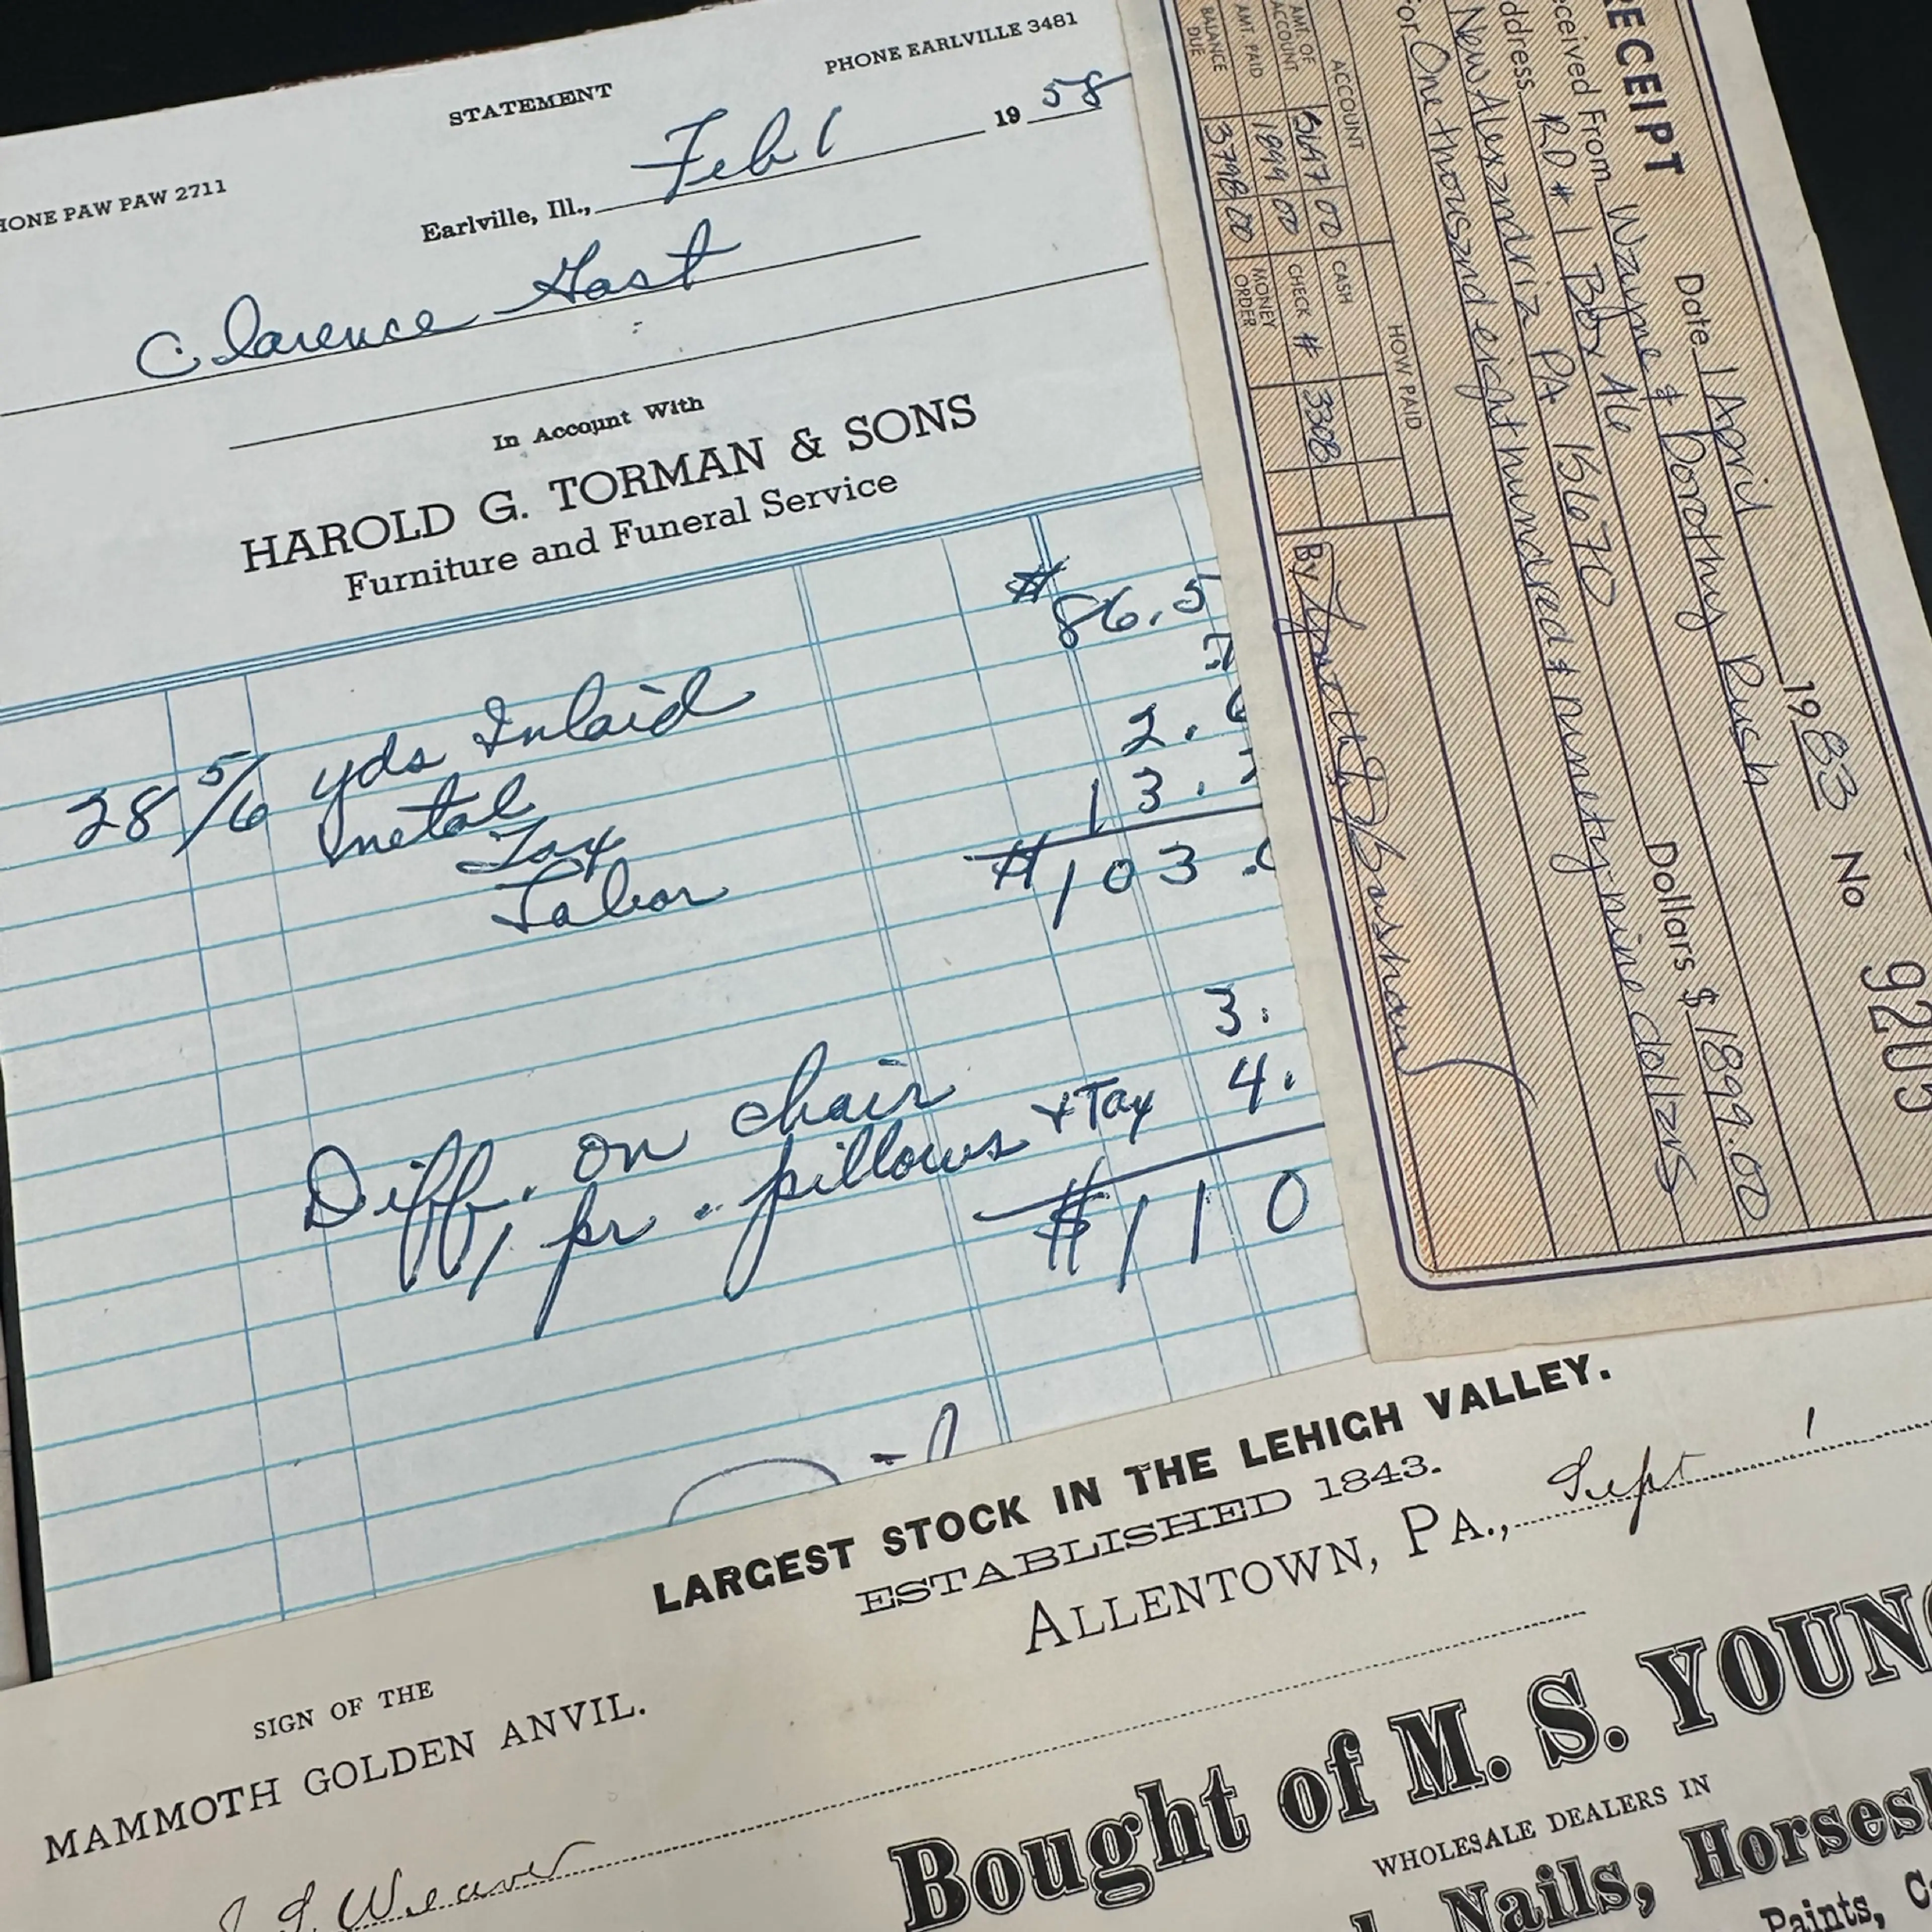 STATEMENT
PHONE EARLVILLE 3481
HONE PAW PAW 2711
Earlville, Ill., Feb 1 19 58
Clarence Gast
In Account With
HAROLD G. TORMAN & SONS
Furniture and Funeral Service
28 5/6 yds Inlaid $86.5
metal .7
Tax 2.
Labor 13.
$103.
Diff. on chair 3.
1 pr. pillows + Tax 4.
$110
RECEIPT
Date 1 April 1983 No 9205
eceived From Wayne & Dorothy Rush
ddress RD #1 Box A6
New Alexandria PA 15670 Dollars $ 1899.00
For One thousand eight hundred & ninety-nine dollars
ACCOUNT HOW PAID
AMT. OF ACCOUNT 5697 00 CASH
AMT. PAID 1899 00 CHECK # 3308
BALANCE DUE 3798 00 MONEY ORDER
By
LARGEST STOCK IN THE LEHIGH VALLEY.
ESTABLISHED 1843.
ALLENTOWN, PA., Sept 1
SIGN OF THE
MAMMOTH GOLDEN ANVIL.
Weaver
Bought of M. S. YOUNG
WHOLESALE DEALERS IN
Nails, Horses
Paints,